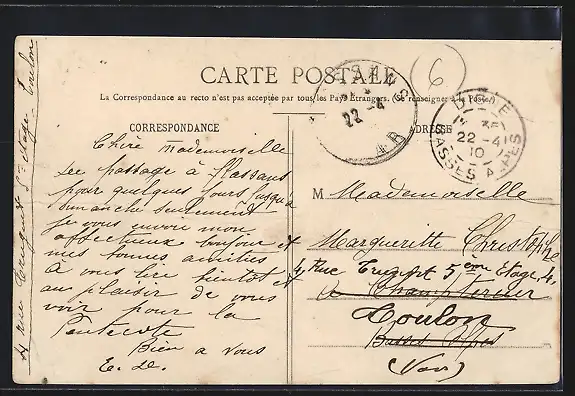 CARTE POSTALE
La Correspondance au recto n'est pas acceptée par tous les Pays Étrangers. (Se renseigner à la Poste).
CORRESPONDANCE
ADRESSE
6
22 -4
22 -4
10
BASSES ALPES
Chère Mademoiselle
De passage à Flassans
pour quelques jours jusqu'à
dimanche seulement
je vous envoie mon
affectueux bonjour et
mes bonnes amitiés
à vous lire bientôt et
au plaisir de vous
voir pour la
Pentecote
Bien a vous
E. D.
M Mademoiselle
Margueritte Christophe
4, Rue Truguet 5 ème Etage, 4,
a Champtercier
Toulon
Basses Alpes
(Var)
4 rue Truguet 5e étage Toulon